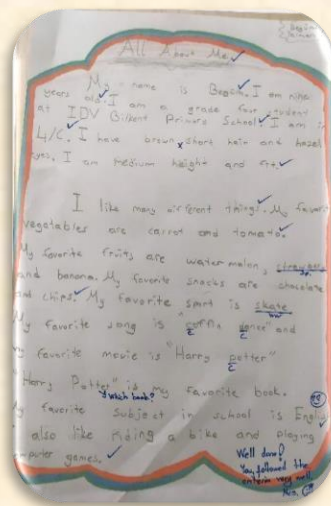 All About Me
My name is Begüm. I am nine
years old. I am a grade four student
at IDV Bilkent Primary School. I am in
4/C. I have brown short hair and hazel
eyes. I am medium height and fit.
I like many different things. My favorite
vegatables are carrot and tomato.
My favorite fruits are watermelon,
and banana. My favorite snacks are chocolate
and chips. My favorite sport is skate
My favorite song is "coffin dance" and
my favorite movie is "Harry potter"
"Harry Potter" is my favorite book.
which book?
My favorite subject in school is English
also like riding a bike and playing
computer games.
Well done!
You followed the
criteria very well.